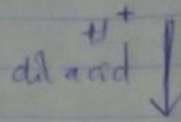 H+
dil acid